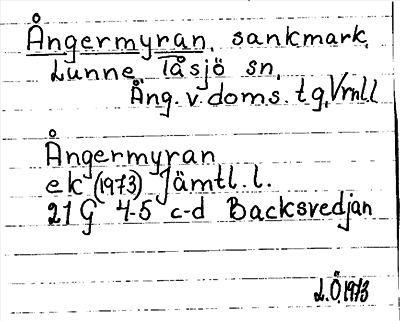 Ångermyran, sankmark,
Lunne, Tåsjö sn,
Ång. v. doms. tg, Vrnl.l
Ångermyran
ek (1973) Jämtl. l.
21 G 4-5 c-d Backsvedjan
L.Ö. 1973